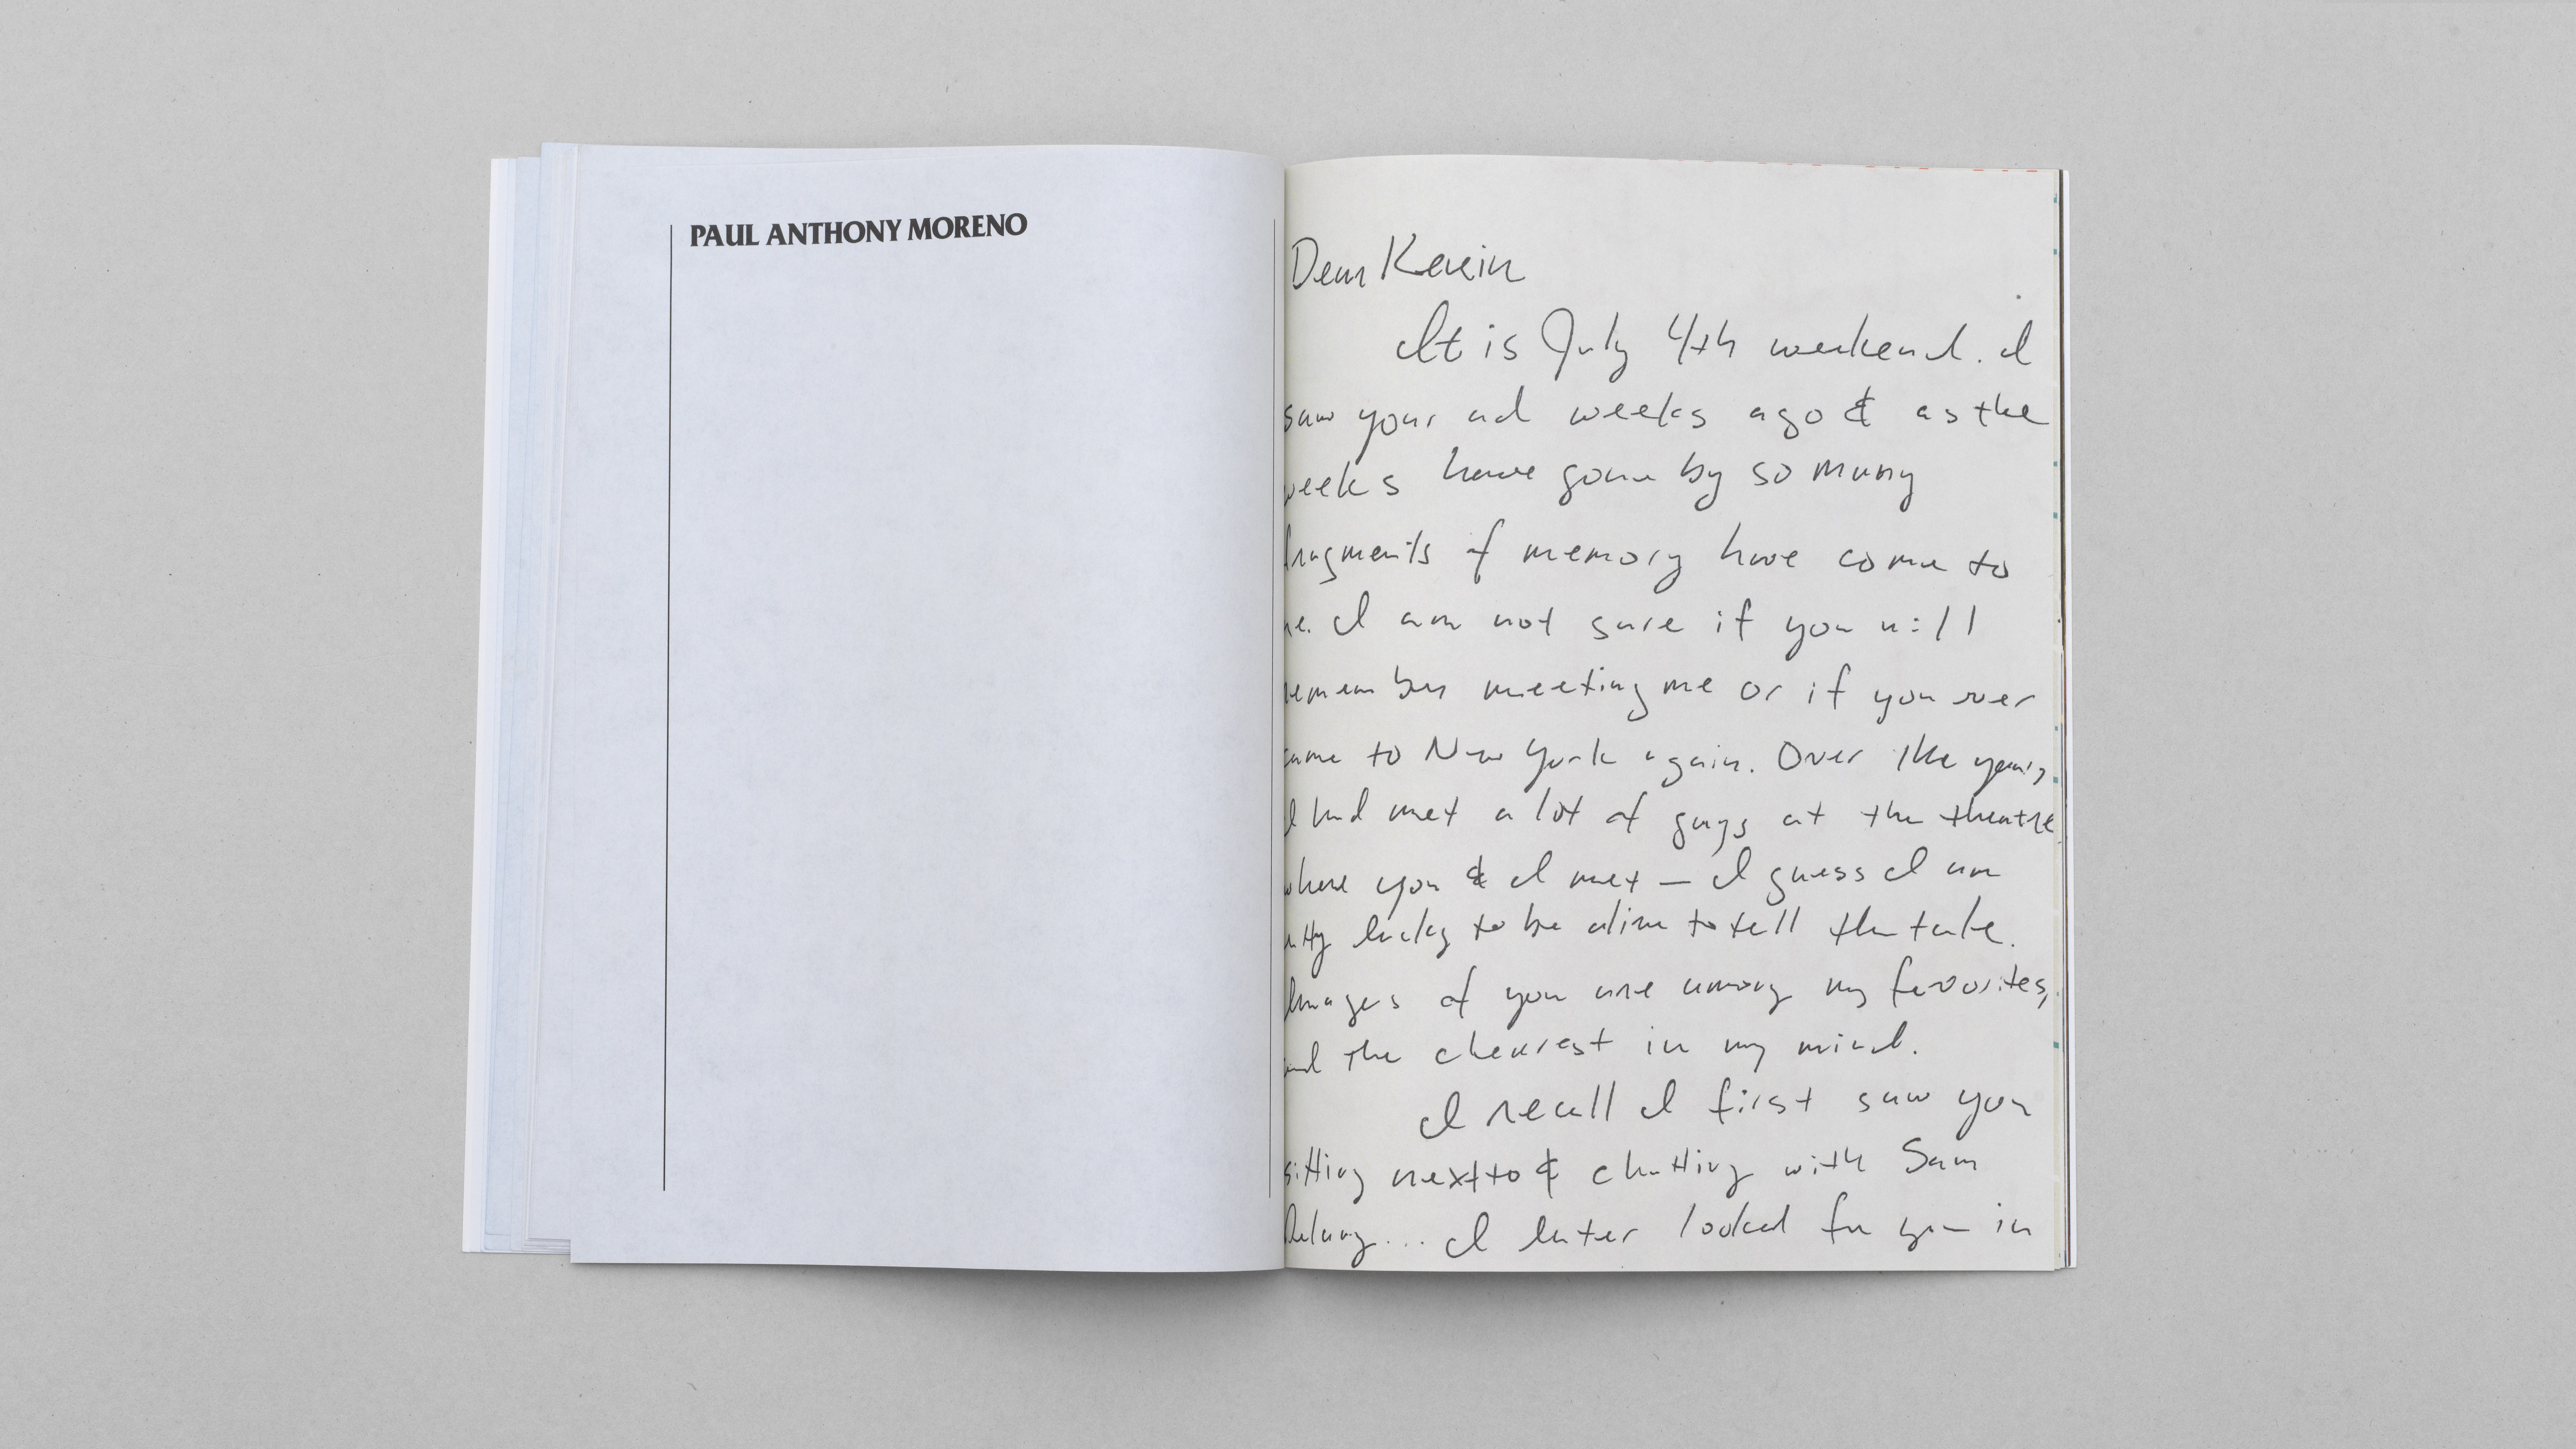 PAUL ANTHONY MORENO
Dear Kevin
It is July 4th weekend. I
saw your ad weeks ago & as the
weeks have gone by so many
fragments of memory have come to
me. I am not sure if you will
remember meeting me or if you ever
came to New York again. Over the years,
I had met a lot of guys at the theatre
where you & I met — I guess I am
lucky to be alive to tell the tale.
Images of you are among my favorites,
and the clearest in my mind.
I recall I first saw you
sitting next to & chatting with Sam
... I later looked for you in